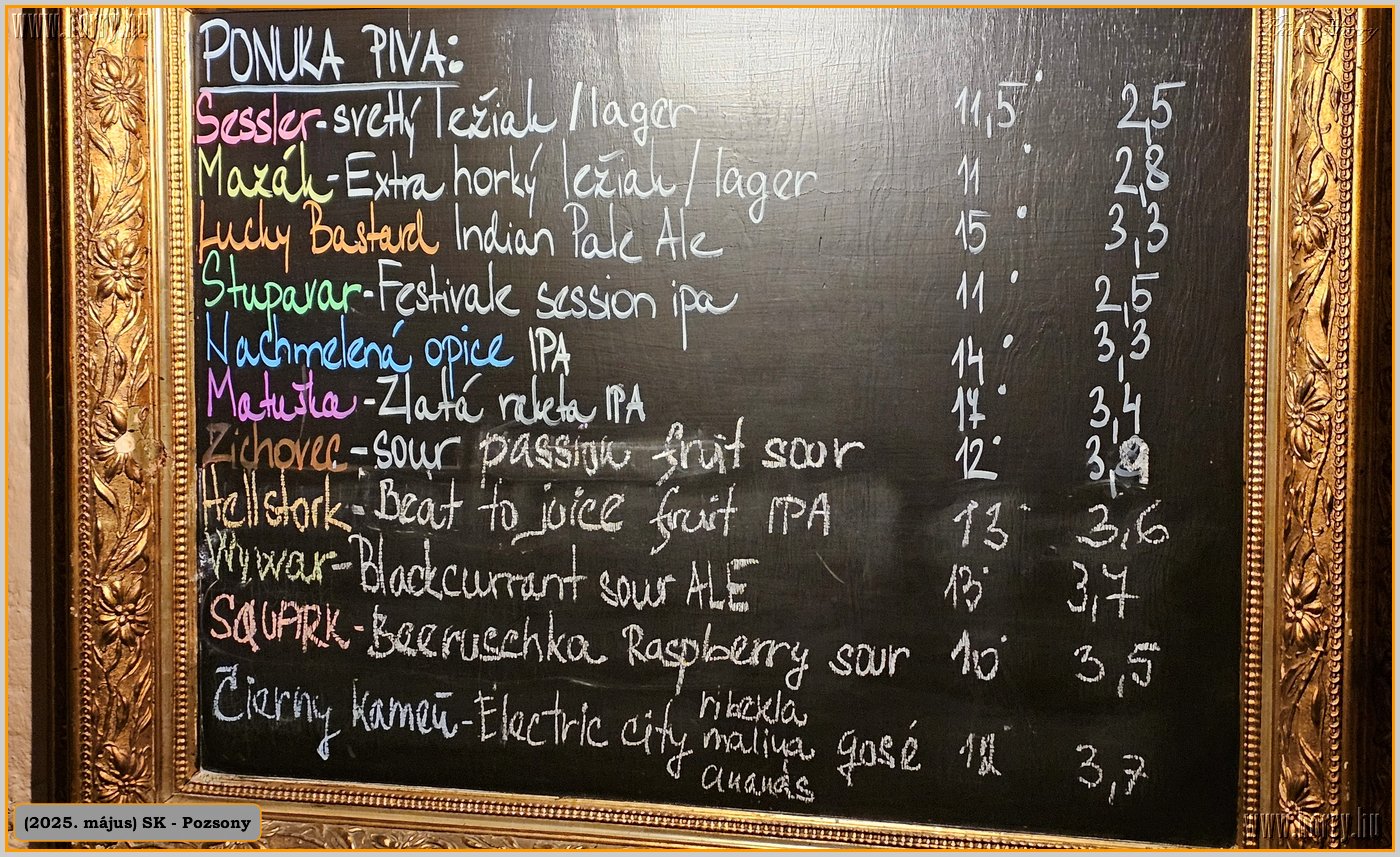 www.norey.hu
PONUKA PIVA:
Sessler-svetlý ležiak /lager 11,5° 2,5
Mazák-Extra horký ležiak / lager 11° 2,8
Lucky Bastard Indian Pale Ale 15° 3,3
Stupavar-Festivale session ipa 11° 2,5
Nachmelená opice IPA 14° 3,3
Matuška-Zlatá raketa IPA 17° 3,4
Zichovec-sour passion fruit sour 12° 3,9
Hellstork-Beat to juice fruit IPA 13° 3,6
Wywar-Blackcurrant sour ALE 13° 3,7
SQUARK-Beeruschka Raspberry sour 10° 3,5
Čierny Kameň-Electric city ribezla malina ananás gosé 3,7
(2025. május) SK - Pozsony
www.norey.hu